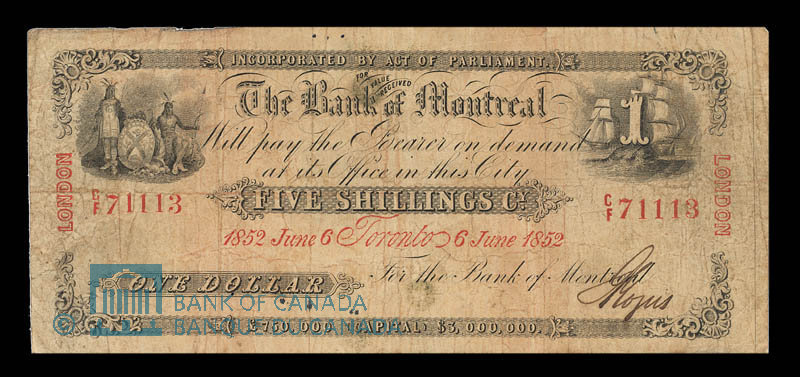 INCORPORATED BY ACT OF PARLIAMENT.
FOR VALUE RECEIVED
The Bank of Montreal
1
Will pay the Bearer on demand
at its Office in this City
FIVE SHILLINGS Cy.
LONDON
LONDON
C/F 71113
C/F 71113
1852 June 6 Toronto 6 June 1852
For the Bank of Montreal
ONE DOLLAR
£750,000. CAPITAL: $3,000,000.
BANK OF CANADA
© BANQUE DU CANADA